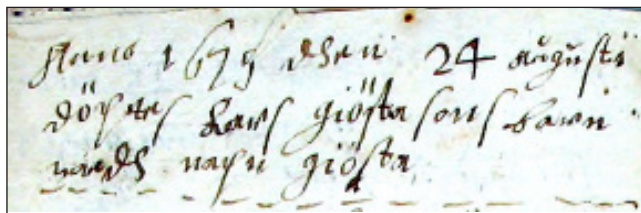 Anno 1675 dhen 24 augusti
döptes Lars giösta sons barn
medh nafn giösta